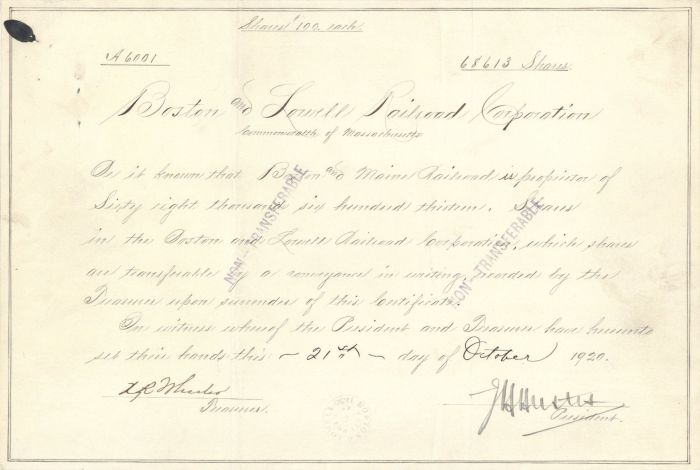 Shares $100. each.
A6001
68613 Shares.
Boston and Lowell Railroad Corporation
Commonwealth of Massachusetts
Be it known that Boston and Maine Railroad is proprietor of
Sixty eight thousand six hundred thirteen. Shares
in the Boston and Lowell Railroad Corporation, which shares
are transferable by a conveyance in writing, recorded by the
Treasurer upon surrender of this Certificate.
In witness whereof the President and Treasurer have hereunto
set their hands this ~ 21st ~ day of October 1920.
NON-TRANSFERABLE
NON-TRANSFERABLE
Wheeler
Treasurer.
President.